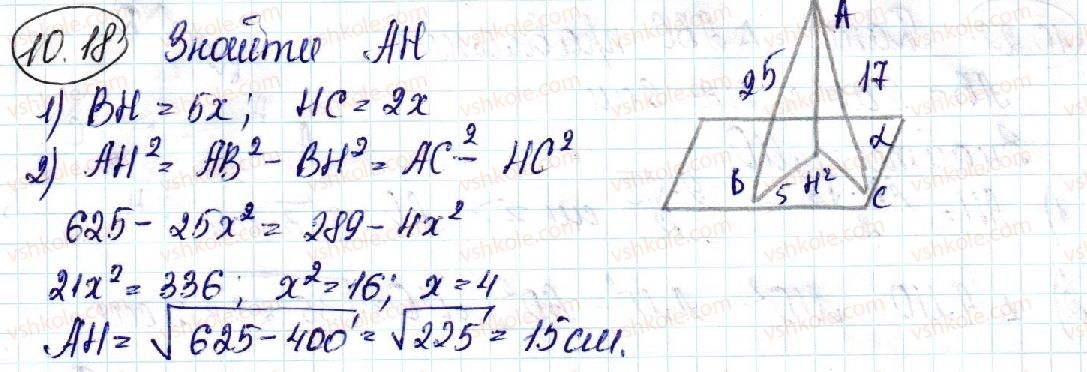 10.18 Знайти AH
1) BH = 5x; HC = 2x
2) AH² = AB² - BH² = AC² - HC²
625 - 25x² = 289 - 4x²
21x² = 336; x² = 16; x = 4
AH = √625 - 400 = √225 = 15 см.
A
25 17
α
B 5 H 2 C
vshkole.com